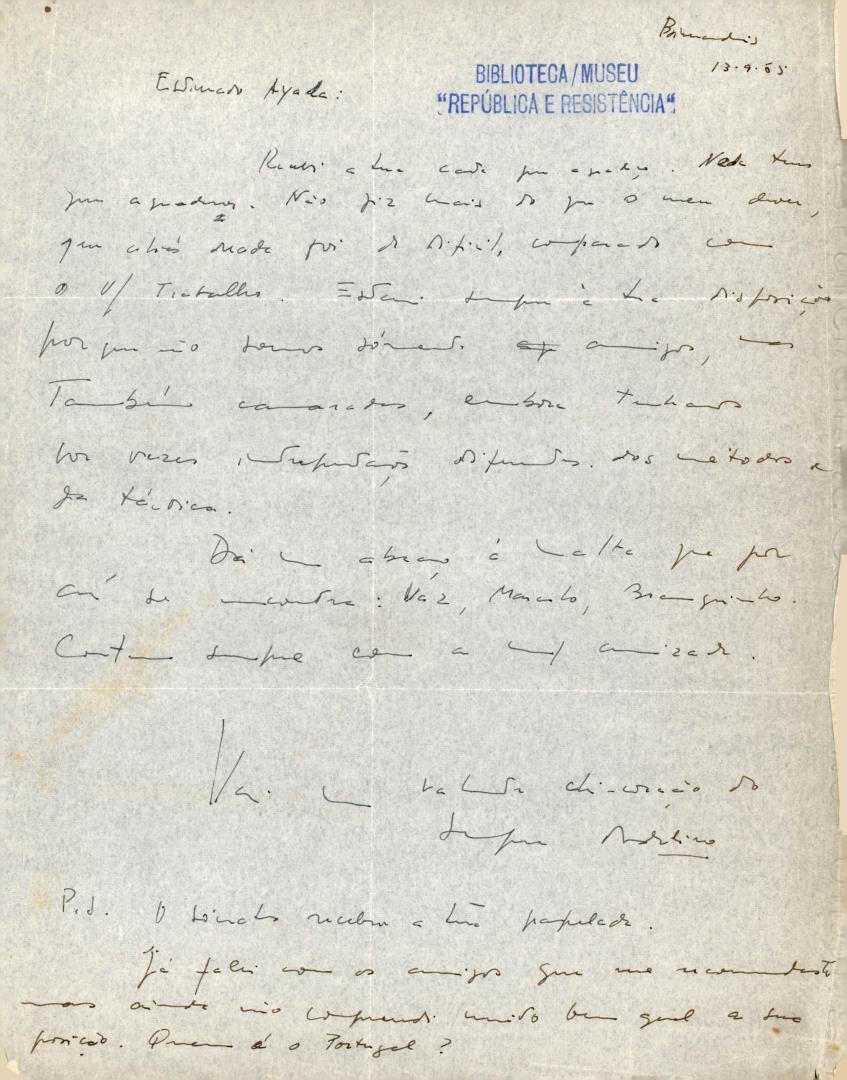 13.9.65
BIBLIOTECA/MUSEU
"REPÚBLICA E RESISTÊNCIA"
Estimado Ayala:
Recebi a tua carta que agradeço. Nada tens
que agradecer. Não fiz mais do que o meu dever,
que aliás nada foi de difícil, comparado com
o V/ Trabalho. Estarei sempre à tua disposição
porque não somos sómente amigos, mas
Também camaradas, embora tenhamos
por vezes interpretações diferentes dos métodos e
da táctica.
Dá um abraço à malta que por
aí se encontra: Váz, Marcelo, Branquinho.
Contem sempre com a m/ amizade.
Vai um valente chi-coração do
sempre Adelino
P.S. O Sócrates recebeu a tua papelada.
Já falei com os amigos que me recomendaste
mas ainda não compreendi muito bem qual a sua
posição. Quem é o Portugal?